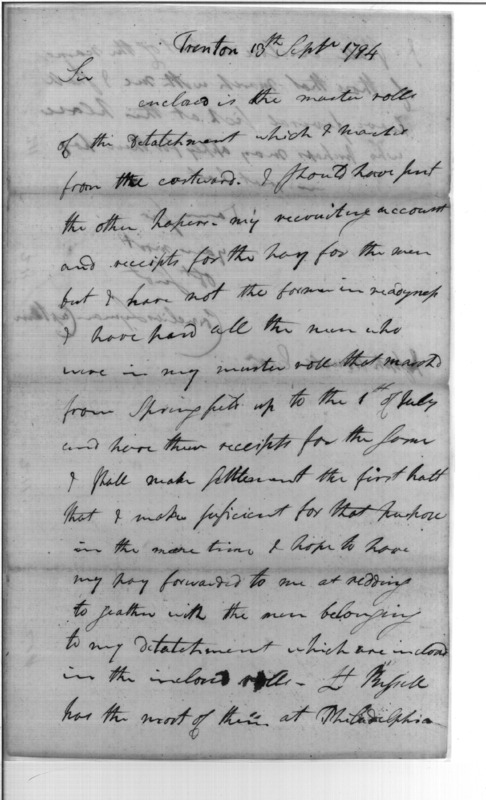 Trenton 13th Sept 1794
Sir
enclosd is the muster rolls
of the Detatchment which I marchd
from the eastward. I should have sent
the other papers. my recruiting account
and receipts for the pay for the men
but I have not the former in readyness
I have paid all the men who
were in my muster roll that marchd
from Springfield up to the 1st of July
and have their receipts for the same
I shall make settlement the first halt
that I make suficient for that purpose
in the mean time I hope to have
my pay forwarded to me at redding
to geather with the men belonging
to my detatchment which are inclosd
in the inclosd rolls - Lt Bissell
has the most of them at Philadelphia